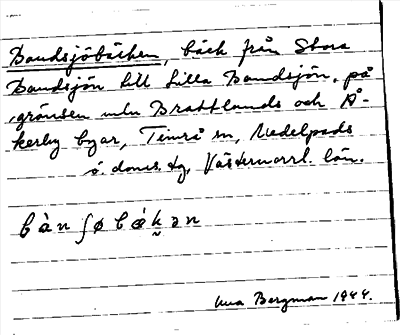 Bandsjöbäcken, bäck från Stora
Bandsjön till Lilla Bandsjön, på
gränsen mln Brattlands och Å-
kerby byar, Timrå sn, Medelpads
ö. doms. tg, Västernorrl. län.
bàn ʃøbǽkən
Bergman 1944.